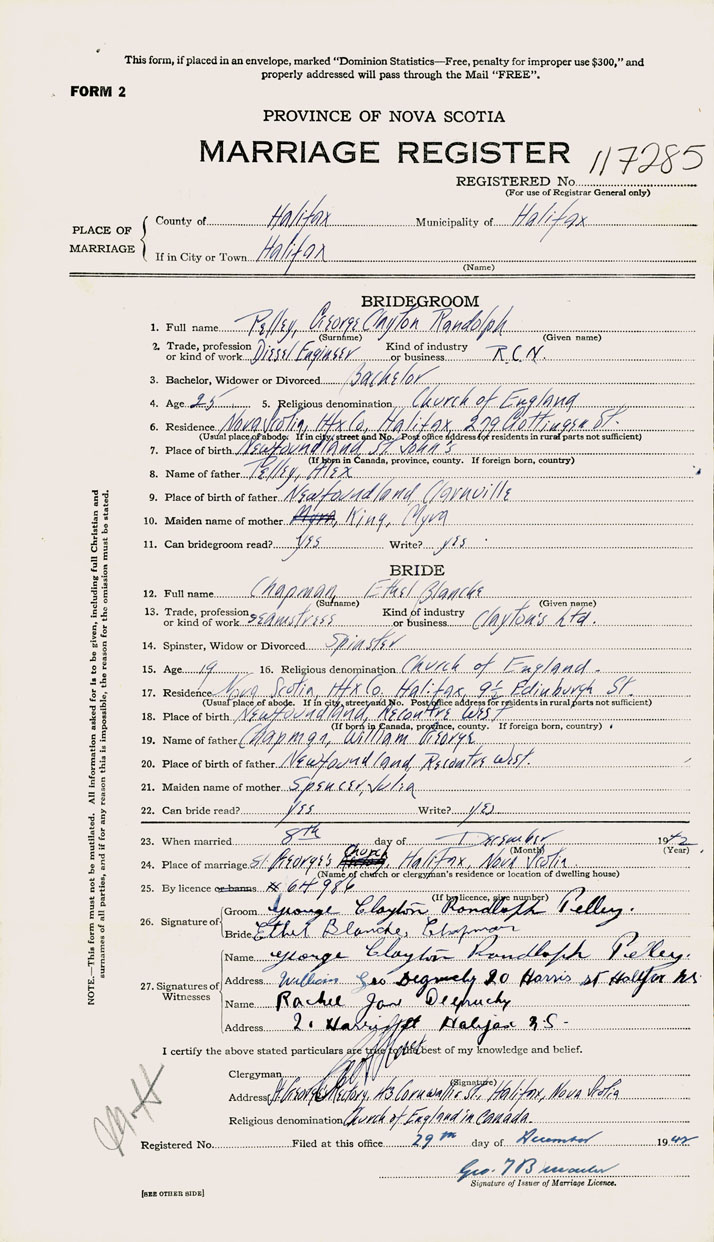 This form, if placed in an envelope, marked "Dominion Statistics—Free, penalty for improper use $300," and
properly addressed will pass through the Mail "FREE".
FORM 2
PROVINCE OF NOVA SCOTIA
MARRIAGE REGISTER
117285
REGISTERED No.
(For use of Registrar General only)
PLACE OF MARRIAGE
County of Halifax Municipality of Halifax
If in City or Town Halifax
(Name)
BRIDEGROOM
1. Full name Pelley, George Clayton Randolph
(Surname) (Given name)
2. Trade, profession or kind of work Diesel Engineer Kind of industry or business R.C.N.
3. Bachelor, Widower or Divorced Bachelor
4. Age 25 5. Religious denomination Church of England
6. Residence Nova Scotia, Hfx Co, Halifax, 279 Gottingen St.
(Usual place of abode. If in city, street and No. Post office address for residents in rural parts not sufficient)
7. Place of birth Newfoundland St John's
(If born in Canada, province, county. If foreign born, country)
8. Name of father Pelley, Alex
9. Place of birth of father Newfoundland, Clarnville
10. Maiden name of mother Myra, King, Myra
11. Can bridegroom read? yes Write? yes
BRIDE
12. Full name Chapman Ethel Blanche
(Surname) (Given name)
13. Trade, profession or kind of work seamstress Kind of industry or business Clayton's Ltd.
14. Spinster, Widow or Divorced Spinster
15. Age 19 16. Religious denomination Church of England.
17. Residence Nova Scotia, Hfx Co. Halifax, 9½ Edinburgh St.
(Usual place of abode. If in city, street and No. Post office address for residents in rural parts not sufficient)
18. Place of birth Newfoundland, Recontre West
(If born in Canada, province, county. If foreign born, country)
19. Name of father Chapman, William George
20. Place of birth of father Newfoundland Recontre West.
21. Maiden name of mother Spencer, Julia
22. Can bride read? yes Write? yes
23. When married 8th day of December 1942
(Month) (Year)
24. Place of marriage St. George's Church, Halifax, Nova Scotia
(Name of church or clergyman's residence or location of dwelling house)
25. By licence or banns # 64986
(If by licence, give number)
26. Signature of
Groom George Clayton Randolph Pelley.
Bride Ethel Blanche, Chapman
27. Signatures of Witnesses
Name George Clayton Randloph Pelley.
Address William Geo 20 Harris st Halifax NS
Name Rachel Jan
Address Harris St Halifax N.S.
I certify the above stated particulars are true to the best of my knowledge and belief.
Clergyman
(Signature)
Address St. George's Rectory, 43 Cornwallis St., Halifax, Nova Scotia
Religious denomination Church of England in Canada.
Registered No. Filed at this office 29th day of December 1942
Geo.
Signature of Issuer of Marriage Licence.
[SEE OTHER SIDE]
NOTE.—This form must not be mutilated. All information asked for is to be given, including full Christian and
surnames of all parties, and if for any reason this is impossible, the reason for the omission must be stated.